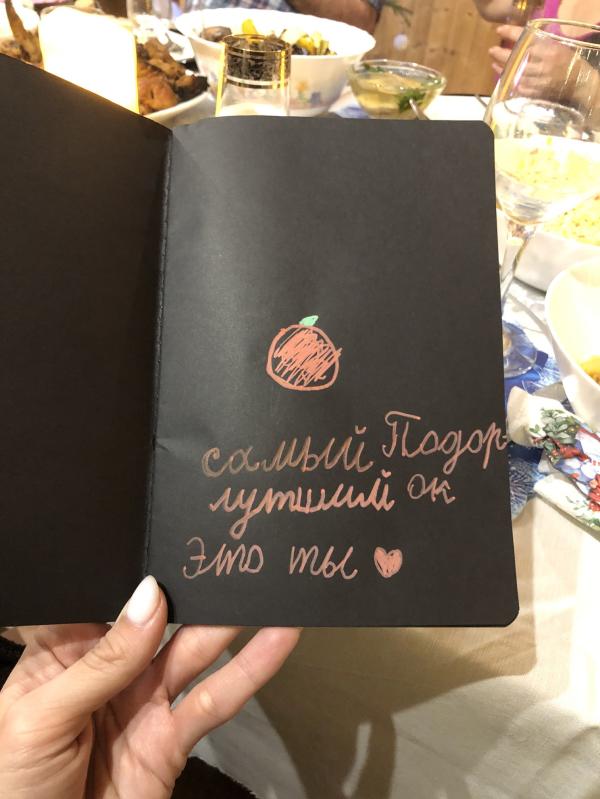 самый Подор-
лутший ок
Это ты ❤